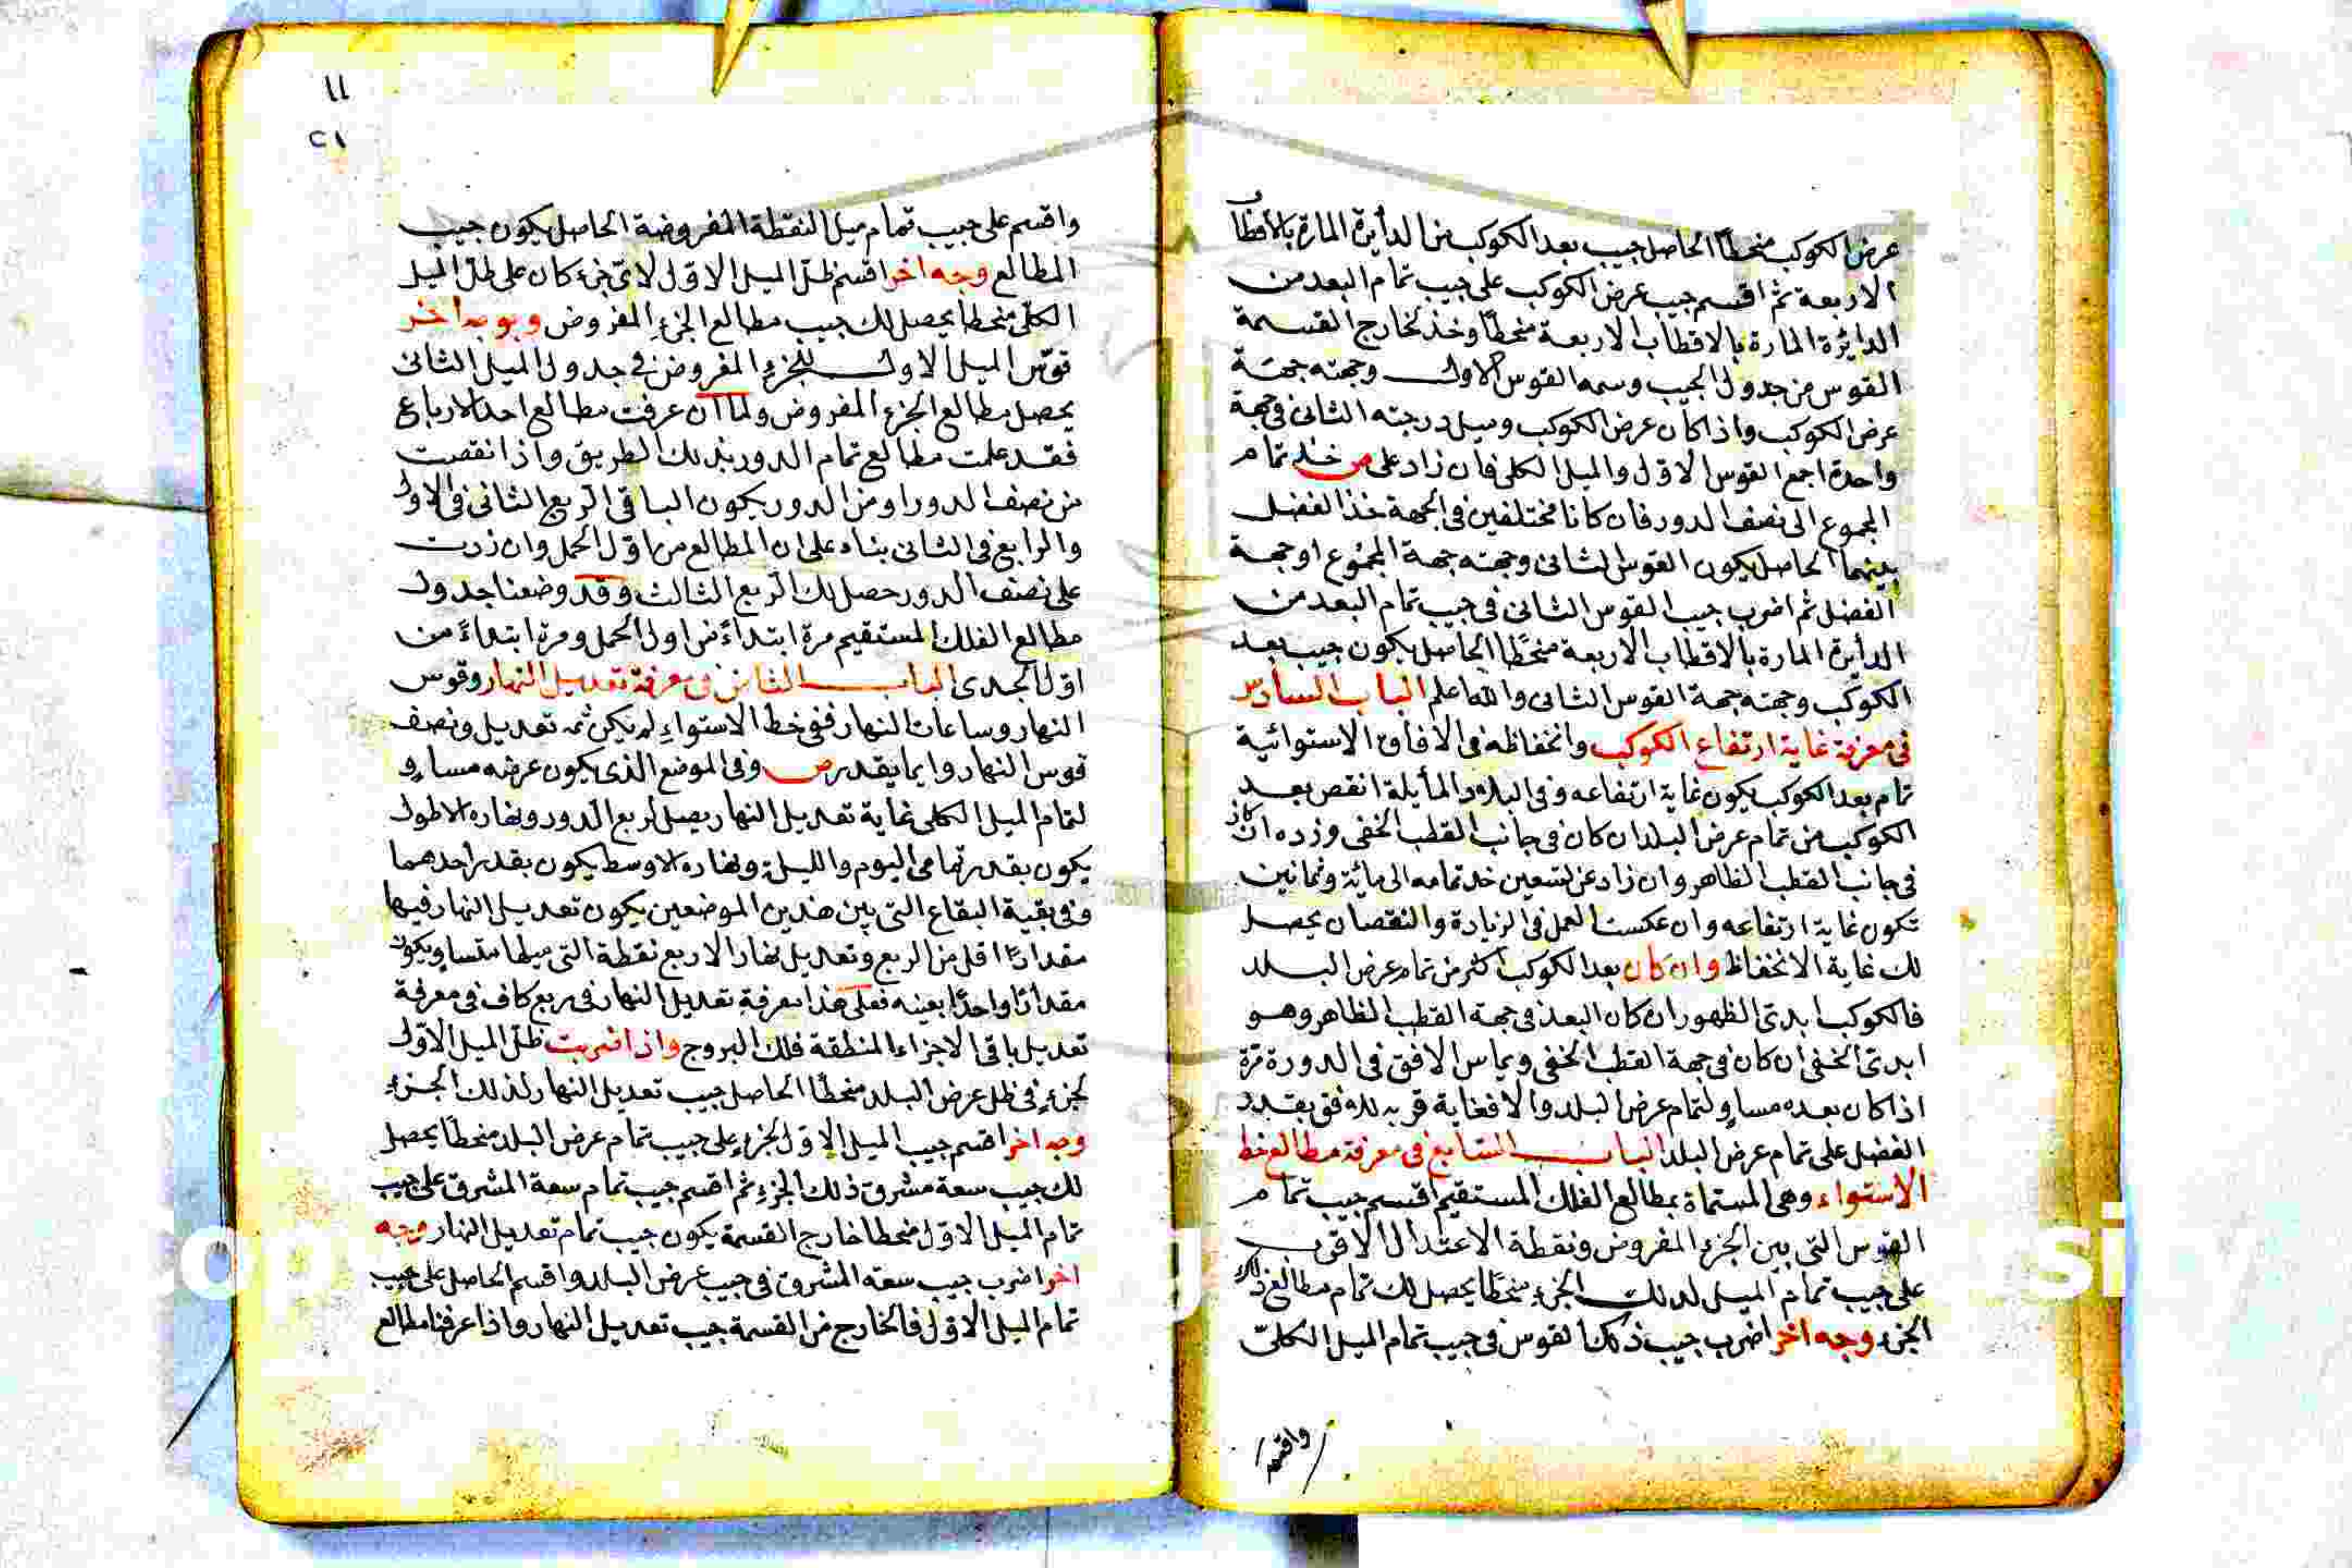 عرض الكوكب منحطاً الحاصل جيب بعد الكوكب من الدايرة المارة بالاقطاب
الاربعة ثم اقسم جيب عرض الكوكب على جيب تمام البعد من
الدائرة المارة بالاقطاب الاربعة منحطاً وخذ لخارج القسمة
القوس من جدول الجيب وسمه القوس الاول وجهته جهة
عرض الكوكب واذا كان عرض الكوكب وميل درجته الثانى فى جهة
واحدة اجمع القوس الاول والميل الكلى فان زاد على ص خذ تمام
المجموع الى نصف الدور فان كانا مختلفين فى الجهة خذ الفضل
بينهما الحاصل يكون القوس الثانى وجهته جهة المجموع او جهة
الفضل ثم اضرب جيب القوس الثانى فى جيب تمام البعد من
الدايرة المارة بالاقطاب الاربعة منحطا الحاصل يكون جيب بعد
الكوكب وجهته جهة القوس الثانى والله اعلم الباب السادس
فى معرفة غاية ارتفاع الكوكب وانخفاظه فى الافاق الاستوائية
تمام بعد الكوكب يكون غاية ارتفاعه وفى البلاد المأيلة انقص بعد
الكوكب من تمام عرض البلد ان كان فى جانب القطب الخفى وزده ان كان
فى جانب القطب الظاهر وان زاد عن تسعين خذ تمامه الى مائة وثمانين
تكون غاية ارتفاعه وان عكست العمل فى الزيادة والنقصان يحصل
لك غاية الانخفاظ وان كان بعد الكوكب اكثر من تمام عرض البلد
فالكوكب ابدى الظهور ان كان البعد فى جهة القطب الظاهر وهو
ابدى الخفى ان كان فى جهة القطب الخفى ويماس الافق فى الدورة مرة
اذا كان بعده مساو لتمام عرض البلد والا فغاية قربه للافق بقدر
الفضل على تمام عرض البلد الباب السابع فى معرفة مطالع خط
الاستواء وهى المسماة بمطالع الفلك المستقيم اقسم جيب تمام
القوس التى بين الجزء المفروض ونقطة الاعتدال الاقرب
على جيب تمام الميل لذلك الجزء منحطا يحصل لك تمام مطالع ذلك
الجزء وجه اخر اضرب جيب ذلك القوس فى جيب تمام الميل الكلى
واقسم
١١
٢١
واقسم على جيب تمام ميل النقطة المفروضة الحاصل يكون جيب
المطالع وجه اخر اقسم ظل الميل الاول لاى جزء كان على ظل الميل
الكلى منحطا يحصل لك جيب مطالع الجزء المفروض وبوجه اخر
قوس الميل الاول للجزء المفروض فى جدول الميل الثانى
يحصل مطالع الجزء المفروض ولما ان عرفت مطالع احد الارباع
فقد علمت مطالع تمام الدور بذلك الطريق واذا نقصت
من نصف الدور او من الدور يكون الباقى الربع الثانى فى الاول
والرابع فى الثانى بناء على ان المطالع من اول الحمل وان زدت
على نصف الدور حصل لك الربع الثالث وقد وضعنا جدول
مطالع الفلك المستقيم مرة ابتداءً من اول الحمل ومرة ابتداءً من
اول الجدى الباب الثامن فى معرفة تعديل النهار وقوس
النهار وساعات النهار ففى خط الاستواء لم يكن ثمه تعديل ونصف
قوس النهار دايما بقدر ص وفى الموضع الذى يكون عرضه مساو
لتمام الميل الكلى غاية تعديل النهار يصل لربع الدور ونهاره الاطول
يكون بقدر تمامى اليوم والليلة ونهاره الاوسط يكون بقدر احدهما
وفى بقية البقاع التى بين هذين الموضعين يكون تعديل النهار فيها
مقدارًا اقل من الربع وتعديل نهار الاربع نقطة التى ميلها متساو يكون
مقدارًا واحدًا بعينه فعلى هذا معرفة تعديل النهار فى ربع كاف فى معرفة
تعديل باقى الاجزاء المنطقة فلك البروج واذا ضربت ظل الميل الاول
لجزء فى ظل عرض البلد منحطًا الحاصل جيب تعديل النهار لذلك الجزء
وجه اخر اقسم جيب الميل الاول لجزء على جيب تمام عرض البلد منحطاً يحصل
لك جيب سعة مشرق ذلك الجزء ثم اقسم جيب تمام سعة المشرق على جيب
تمام الميل الاول منحطا خارج القسمة يكون جيب تمام تعديل النهار وجه
اخر اضرب جيب سعة المشرق فى جيب عرض البلد واقسم الحاصل على جيب
تمام الميل الاول فالخارج من القسمة جيب تعديل النهار واذا عرفنا مطالع